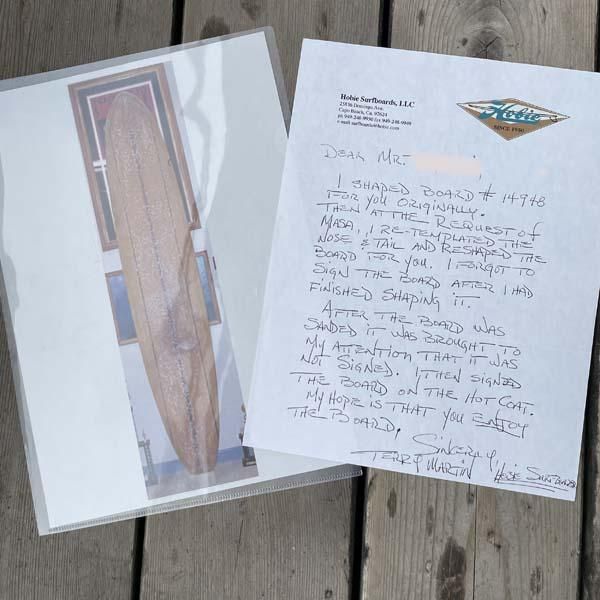 Hobie Surfboards, LLC
Capo Beach, Ca. 92624
ph 949-248-9950 fax 949-248-9949
e-mail surfboards@hobie.com
Hobie
SINCE 1950
DEAR MR.
I SHAPED BOARD # 14948
FOR YOU ORIGINALLY.
THEN AT THE REQUEST OF
MASA, I RE-TEMPLATED THE
NOSE & TAIL AND RESHAPED THE
BOARD FOR YOU. I FORGOT TO
SIGN THE BOARD AFTER I HAD
FINISHED SHAPING IT.
AFTER THE BOARD WAS
SANDED IT WAS BROUGHT TO
MY ATTENTION THAT IT WAS
NOT SIGNED. I THEN SIGNED
THE BOARD ON THE HOT COAT.
MY HOPE IS THAT YOU ENJOY
THE BOARD.
SINCERLY
TERRY MARTIN
HOBIE SURFBOARDS